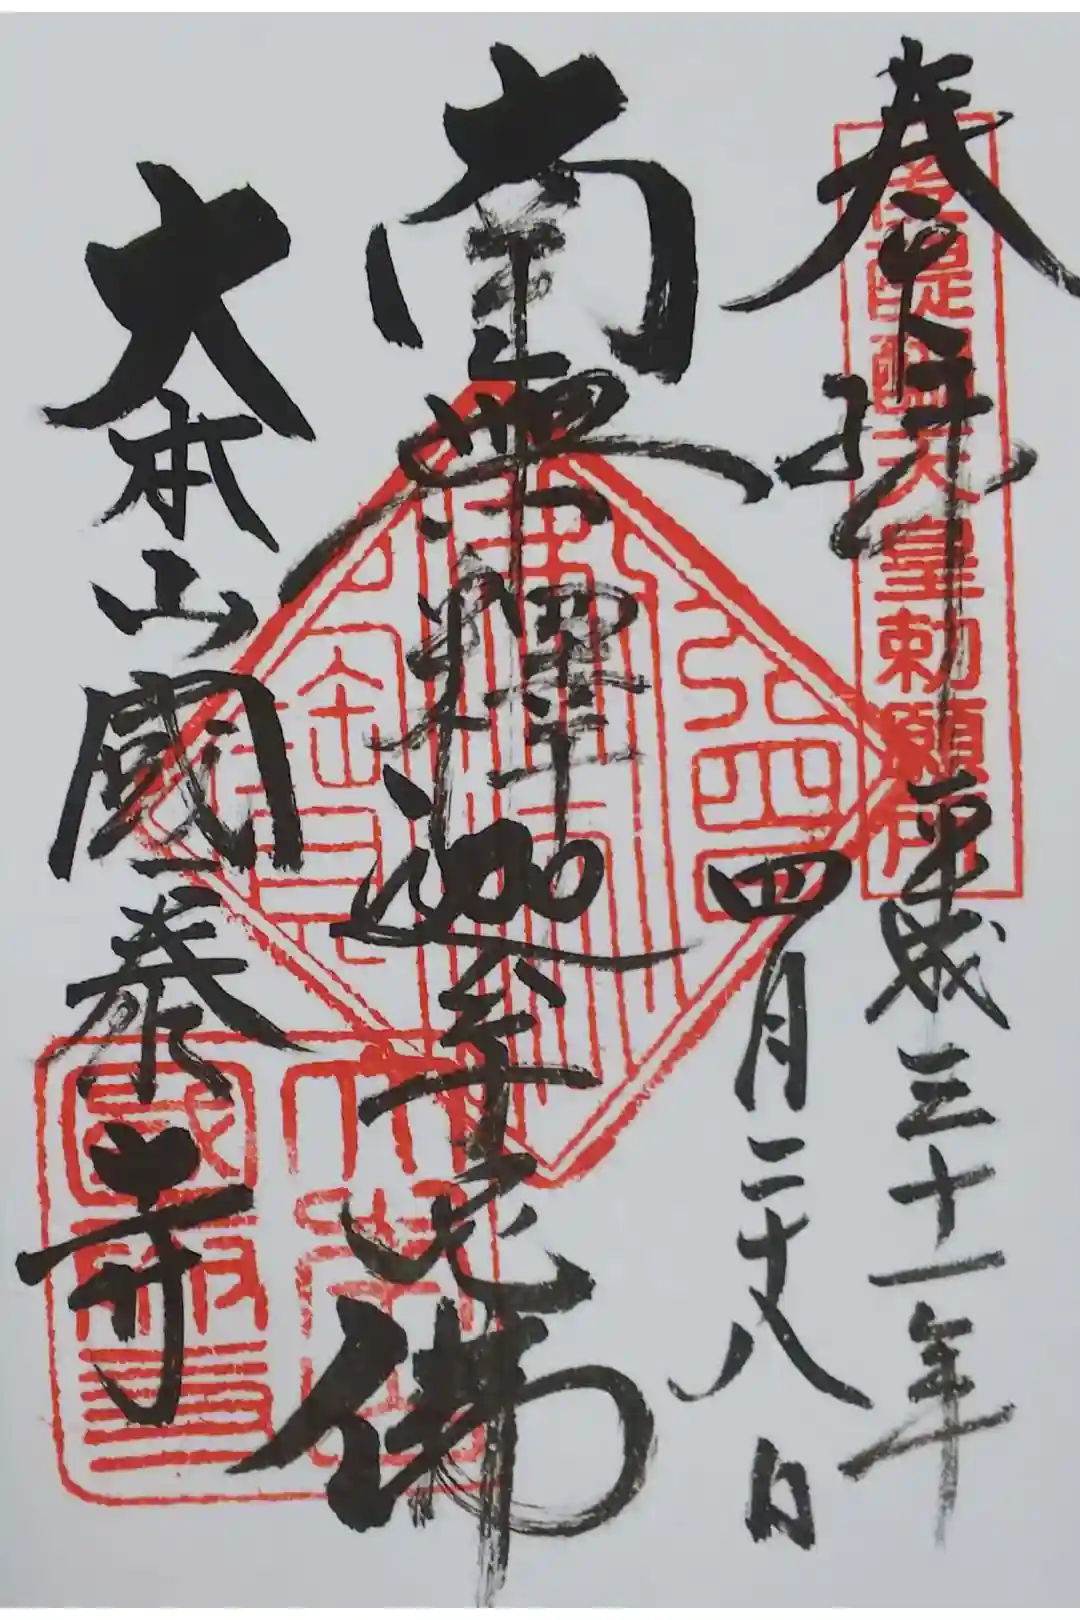 奉拝
後醍醐天皇勅願所
平成三十一年
四月二十八日
南無釋迦牟尼佛
大本山國泰寺